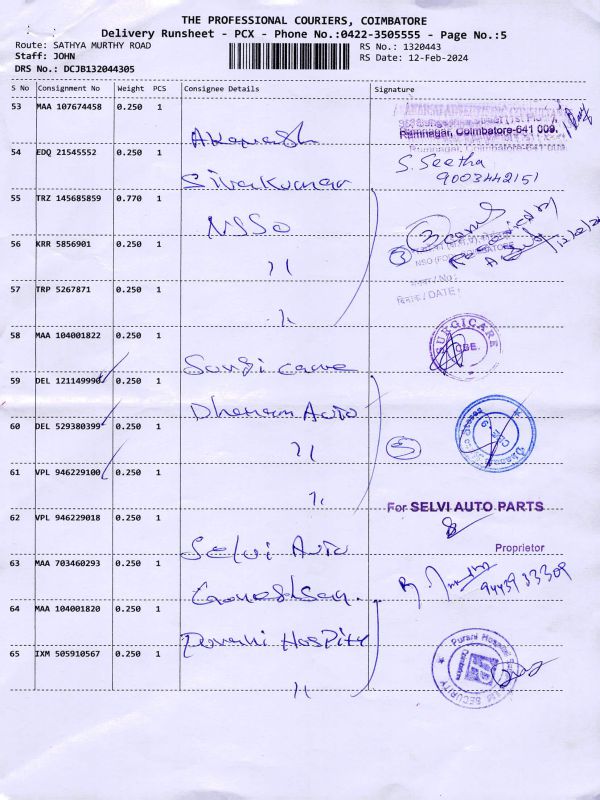 THE PROFESSIONAL COURIERS, COIMBATORE
Delivery Runsheet - PCX - Phone No.:0422-3505555 - Page No.:5
Route: SATHYA MURTHY ROAD
RS No.: 1320443
Staff: JOHN
RS Date: 12-Feb-2024
DRS No.: DCJB132044305
S No Consignment No Weight PCS Consignee Details Signature
53 MAA 107674458 0.250 1
Ramnagar, Coimbatore-641 009.
54 EDQ 21545552 0.250 1 Sivakumar
S. Seetha
9003442151
55 TRZ 145685859 0.770 1 NSSO
56 KRR 5856901 0.250 1 "
57 TRP 5267871 0.250 1 "
/ DATE:
58 MAA 104001822 0.250 1
SURGICARE
CBE.
59 DEL 121149990 0.250 1 Dhanam Auto
60 DEL 529380399 0.250 1 "
5
61 VPL 946229100 0.250 1 "
For SELVI AUTO PARTS
Proprietor
62 VPL 946229018 0.250 1 Selvi Auto
63 MAA 703460293 0.250 1
9443933309
64 MAA 104001820 0.250 1
Purani Hospital
SECURITY
65 IXM 505910567 0.250 1 "